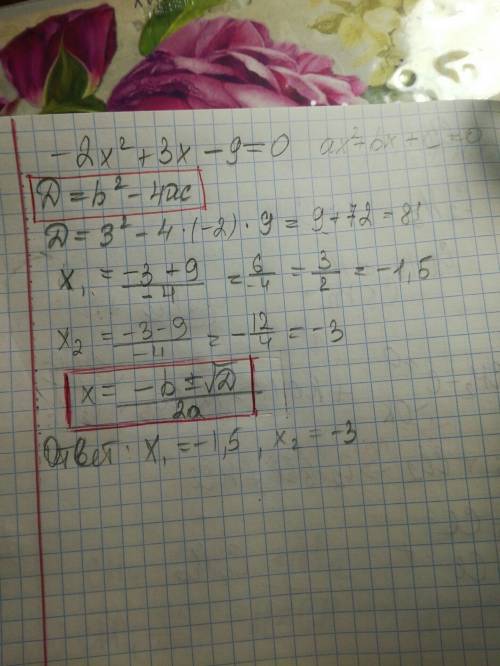 -2x²+3x-9=0 ax²+bx+c=0
D=b²-4ac
D=3²-4·(-2)·9=9+72=81
x₁ = (-3+9)/(-4) = 6/(-4) = 3/2 = -1,5
x₂ = (-3-9)/(-4) = -12/4 = -3
x = (-b±√D)/(2a)
Ответ: x₁=-1,5, x₂=-3